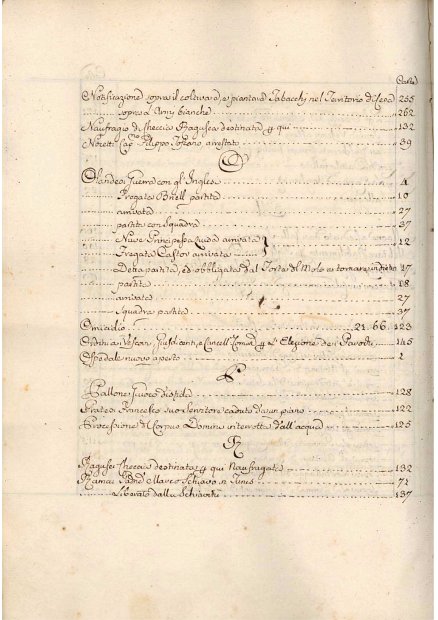 Carte
Notificazione sopra il coltivare, e piantare Tabacchi nel Territorio di 255
sopra l'Army bianche 262
Naufragio di Ragusea destinata p qui 132
Noretti Cap.no Filippo Toscano arrestato 39
O
Olandesi Guerra con gl' Inglesi 4
Fregata Briell partita 10
arrivata 27
partita con Squadra 37
Nave Principessa Luisa arrivata
Fregata Castor arrivata 12
Detta partita, ed obbligata dal Forte del Molo a ritornare indietro 17
partita 18
arrivata 27
Squadra partita 37
Omicidio 21. 66. 123
Ordini a Vescovi, Giusdicenti, e Cancell. Comu. p l' Elezione dei Parochi 145
Ospedale nuovo aperto 2
P
Pallone Giuoco 128
Francesco suo Servitore caduto da un piano 122
Processione di Corpus Domini interrotta dall' acqua 125
R
Ragusei destinata p qui Naufragata 132
Padne Marco Schiavo a Tunis 71
Liberato dalla Schiavitù 137